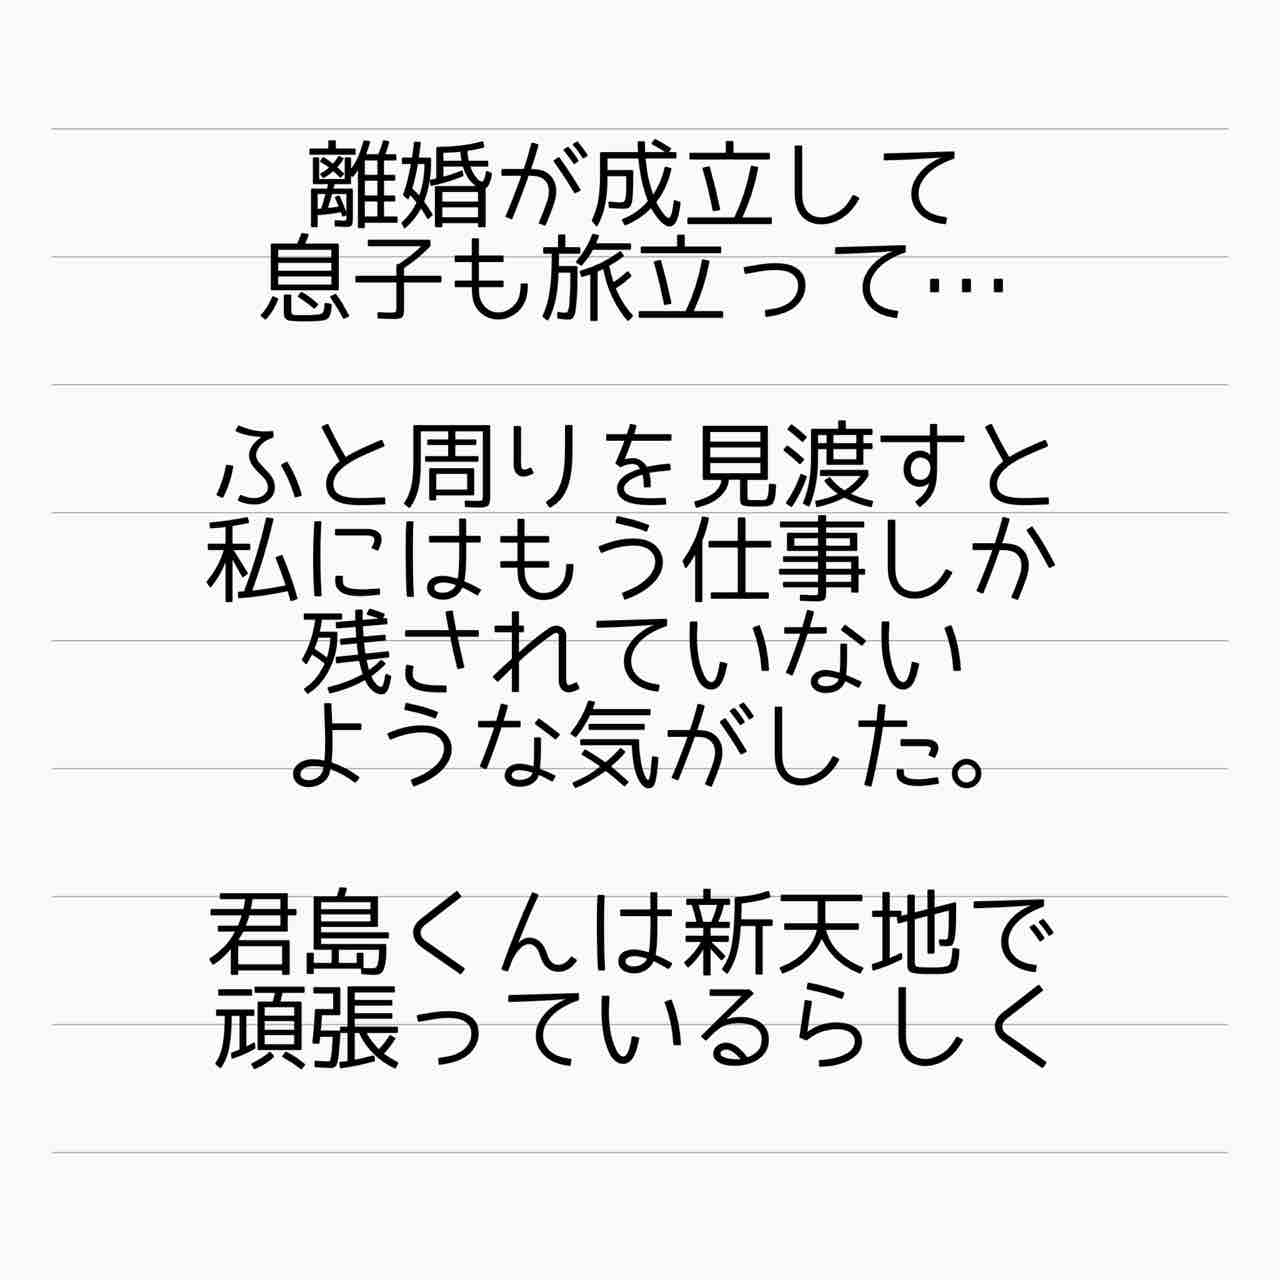 離婚が成立して
息子も旅立って…
ふと周りを見渡すと
私にはもう仕事しか
残されていない
ような気がした。
君島くんは新天地で
頑張っているらしく